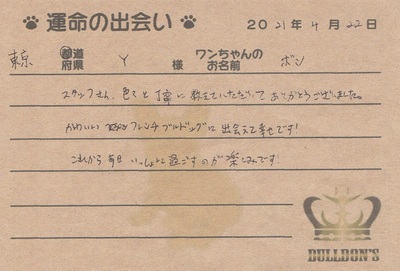 運命の出会い
2021年4月22日
東京 都道府県 Y 様 ワンちゃんのお名前 ボン
スタッフさん、色々と丁寧に教えていただいてありがとうございました。
かわいい フレンチブルドッグに出会えて幸せです!
これから毎日いっしょに過ごすのが楽しみです!
BULLDON'S